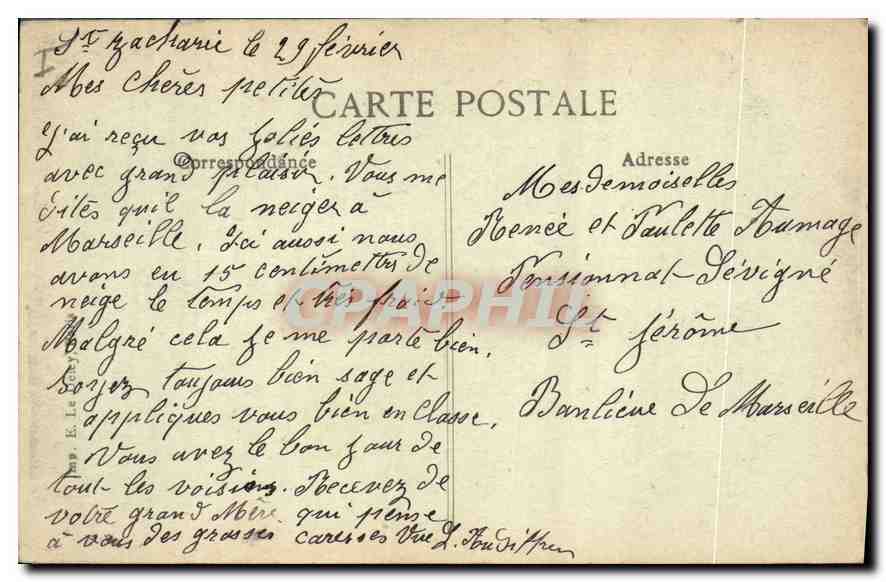 St Zacharie le 29 février
Mes chères petites
CARTE POSTALE
J'ai reçu vos jolies lettres
Correspondance
avec grand plaisir. Vous me
dites qu'il la neiger à
Marseille, Ici aussi nous
avons eu 15 centimetres de
neige le temps et très froid
Malgré cela je me porte bien,
soyez toujours bien sage et
appliques vous bien en classe,
Vous avez le bon jour de
tout les voisins. Recevez de
votre grand Mère qui pense
à vous des grosses caresses Vve L. Audiffren
Adresse
Mesdemoiselles
Renée et Paulette Aumage
Pensionnat Sévigné
St Jérôme
Banliéue de Marseille
CPAPHIL
Imp. E. Le